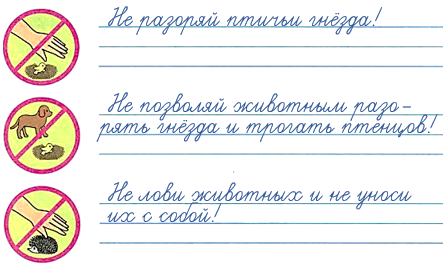 Не разоряй птичьи гнёзда!
Не позволяй животным разо-
рять гнёзда и трогать птенцов!
Не лови животных и не уноси
их с собой!